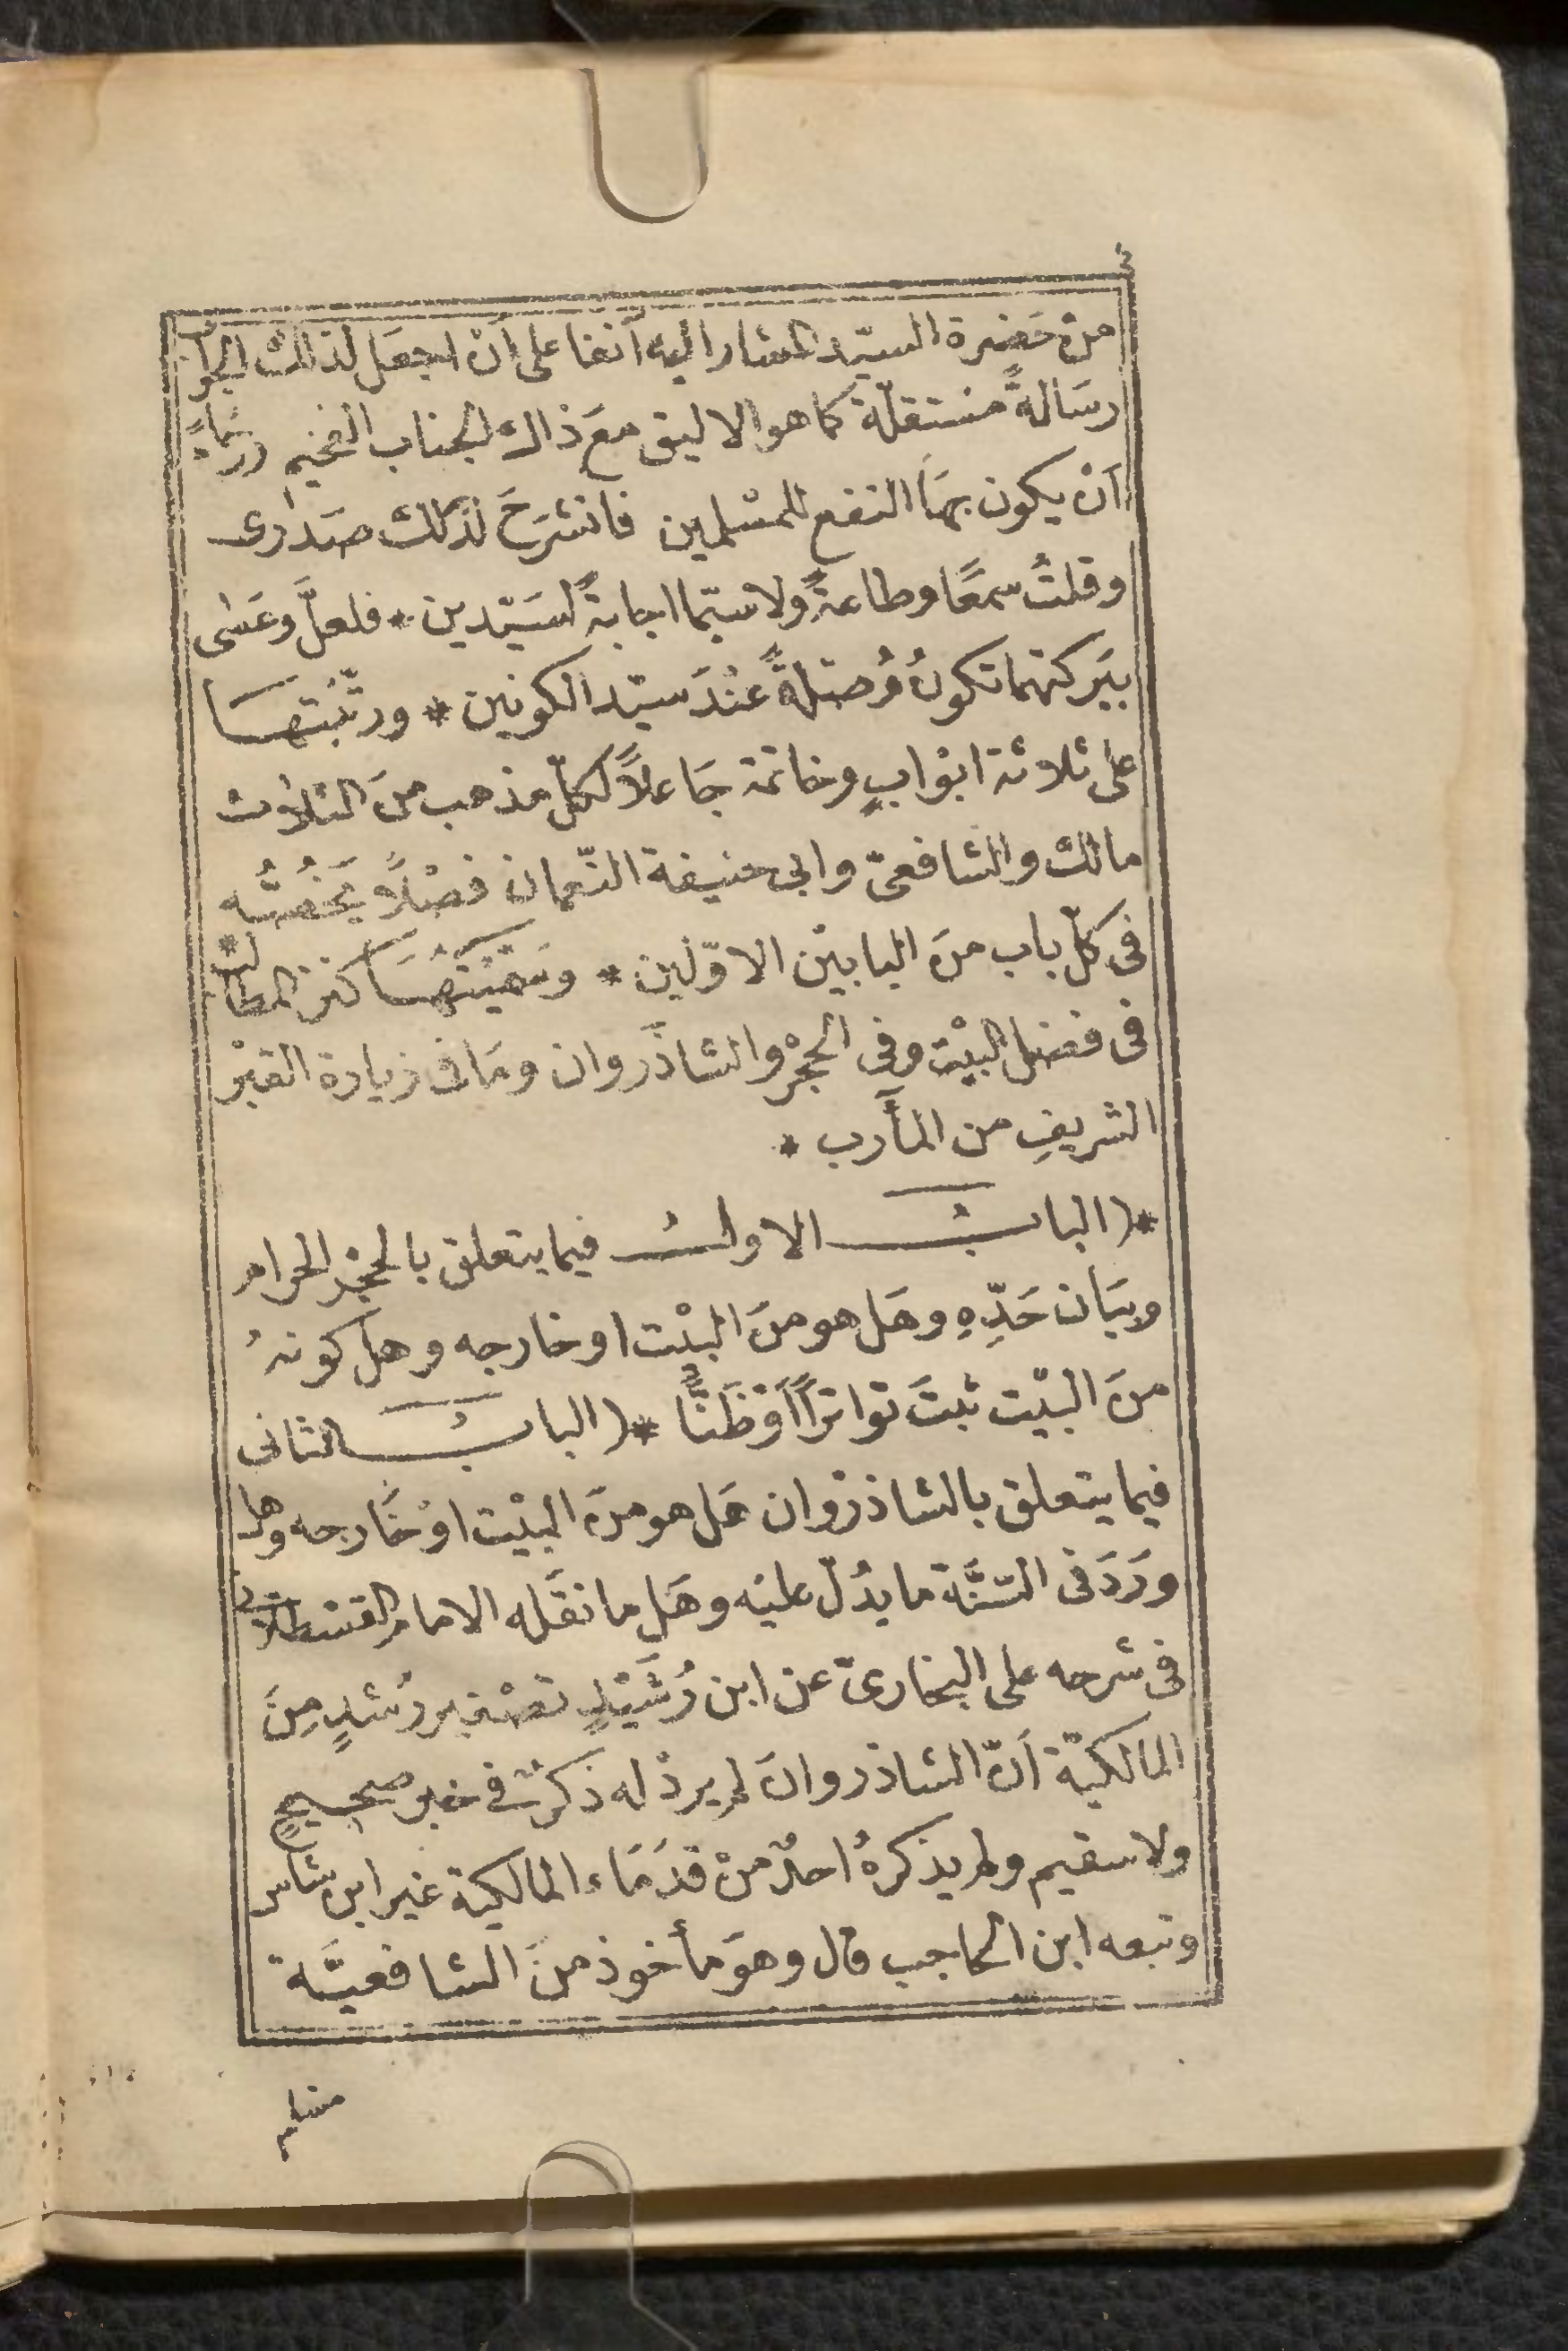 ٤
منْ حَضرة السيّد المشار اليه آنفا على أنْ اجعَل لذلك الجواب
رسَالةً مستقلّة كما هو الاليق معَ ذاك الجناب الفخيم رجَاءً
اَنْ يكون بهَا النفع للمسْلمين فانشرَحَ لذلك صَدرى
وقلتُ سمعًا وطاعةً ولا سيّما اجابةً لسَيّدين * فلعلَّ وعَسٰى
ببَركتهما تكونُ وُصْلةً عنْدَ سيّد الكونين * ورتّبْتهَا
على ثلاثة ابوْابٍ وخاتمة جَاعلاً لكلّ مذهب منَ الثلاث
مالك والشافعىّ وابى حنيفة النّعمان فصْلاً يَخُصُّه
فى كلّ باب منَ البابيْن الاوّلين * وسَمّيْتهَا كنز المطالب *
فى فضل البيْت وفى الحِجْر والشاذَروان ومَا فى زيارة القبْر
الشريفِ من المآرب *
*( البابُ الاولُ فيما يتعلق بالحِجْر الحرام
وبيَان حَدِّهِ وهَل هو منَ البيْت او خارجه وهل كونهُ
منَ البيْت ثبتَ تواترًا اَوْ ظَنًّا *( البابُ الثانى
فيما يتعلق بالشاذرْوان هَل هو منَ البيْت اوْ خَارجه وهل
ورَدَ فى السّنَّة ما يدُلّ عليْه وهَل ما نقَله الامام القسْطلانى
فى شرحه على البخارىّ عن ابن رُشَيْدٍ تصْغير رُشدٍ مِنَ
المالكيّة اَنّ الشاذروانَ لم يردْ له ذكرٌ فى خبر صحيحٍ
ولا سقيم ولم يذكرهُ احدٌ منْ قدَمَاء المالكية غير ابن شاس
وتبعه ابن الحاجب قال وهوَ مأخوذ منَ الشافعيَّة